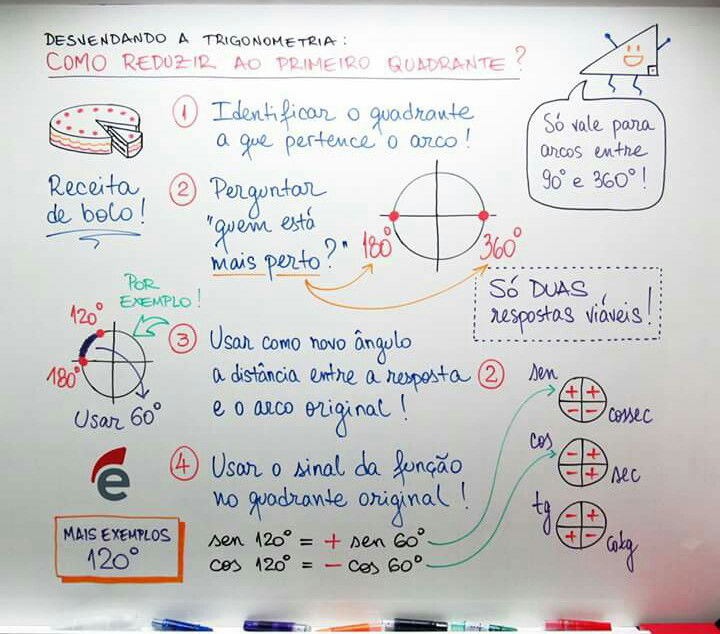 DESVENDANDO A TRIGONOMETRIA:
COMO REDUZIR AO PRIMEIRO QUADRANTE?
Só vale para
arcos entre
90° e 360°!
Receita
de bolo!
1 Identificar o quadrante
a que pertence o arco!
2 Perguntar
"quem está
mais perto?"
180° 360°
Só DUAS
respostas viáveis!
POR
EXEMPLO!
120°
180°
Usar 60°
3 Usar como novo ângulo
a distância entre a resposta 2
e o arco original!
4 Usar o sinal da função
no quadrante original!
sen
+ +
- -
cossec
cos
- +
- +
sec
tg
- +
+ -
cotg
e
MAIS EXEMPLOS
120°
sen 120° = + sen 60°
cos 120° = - cos 60°